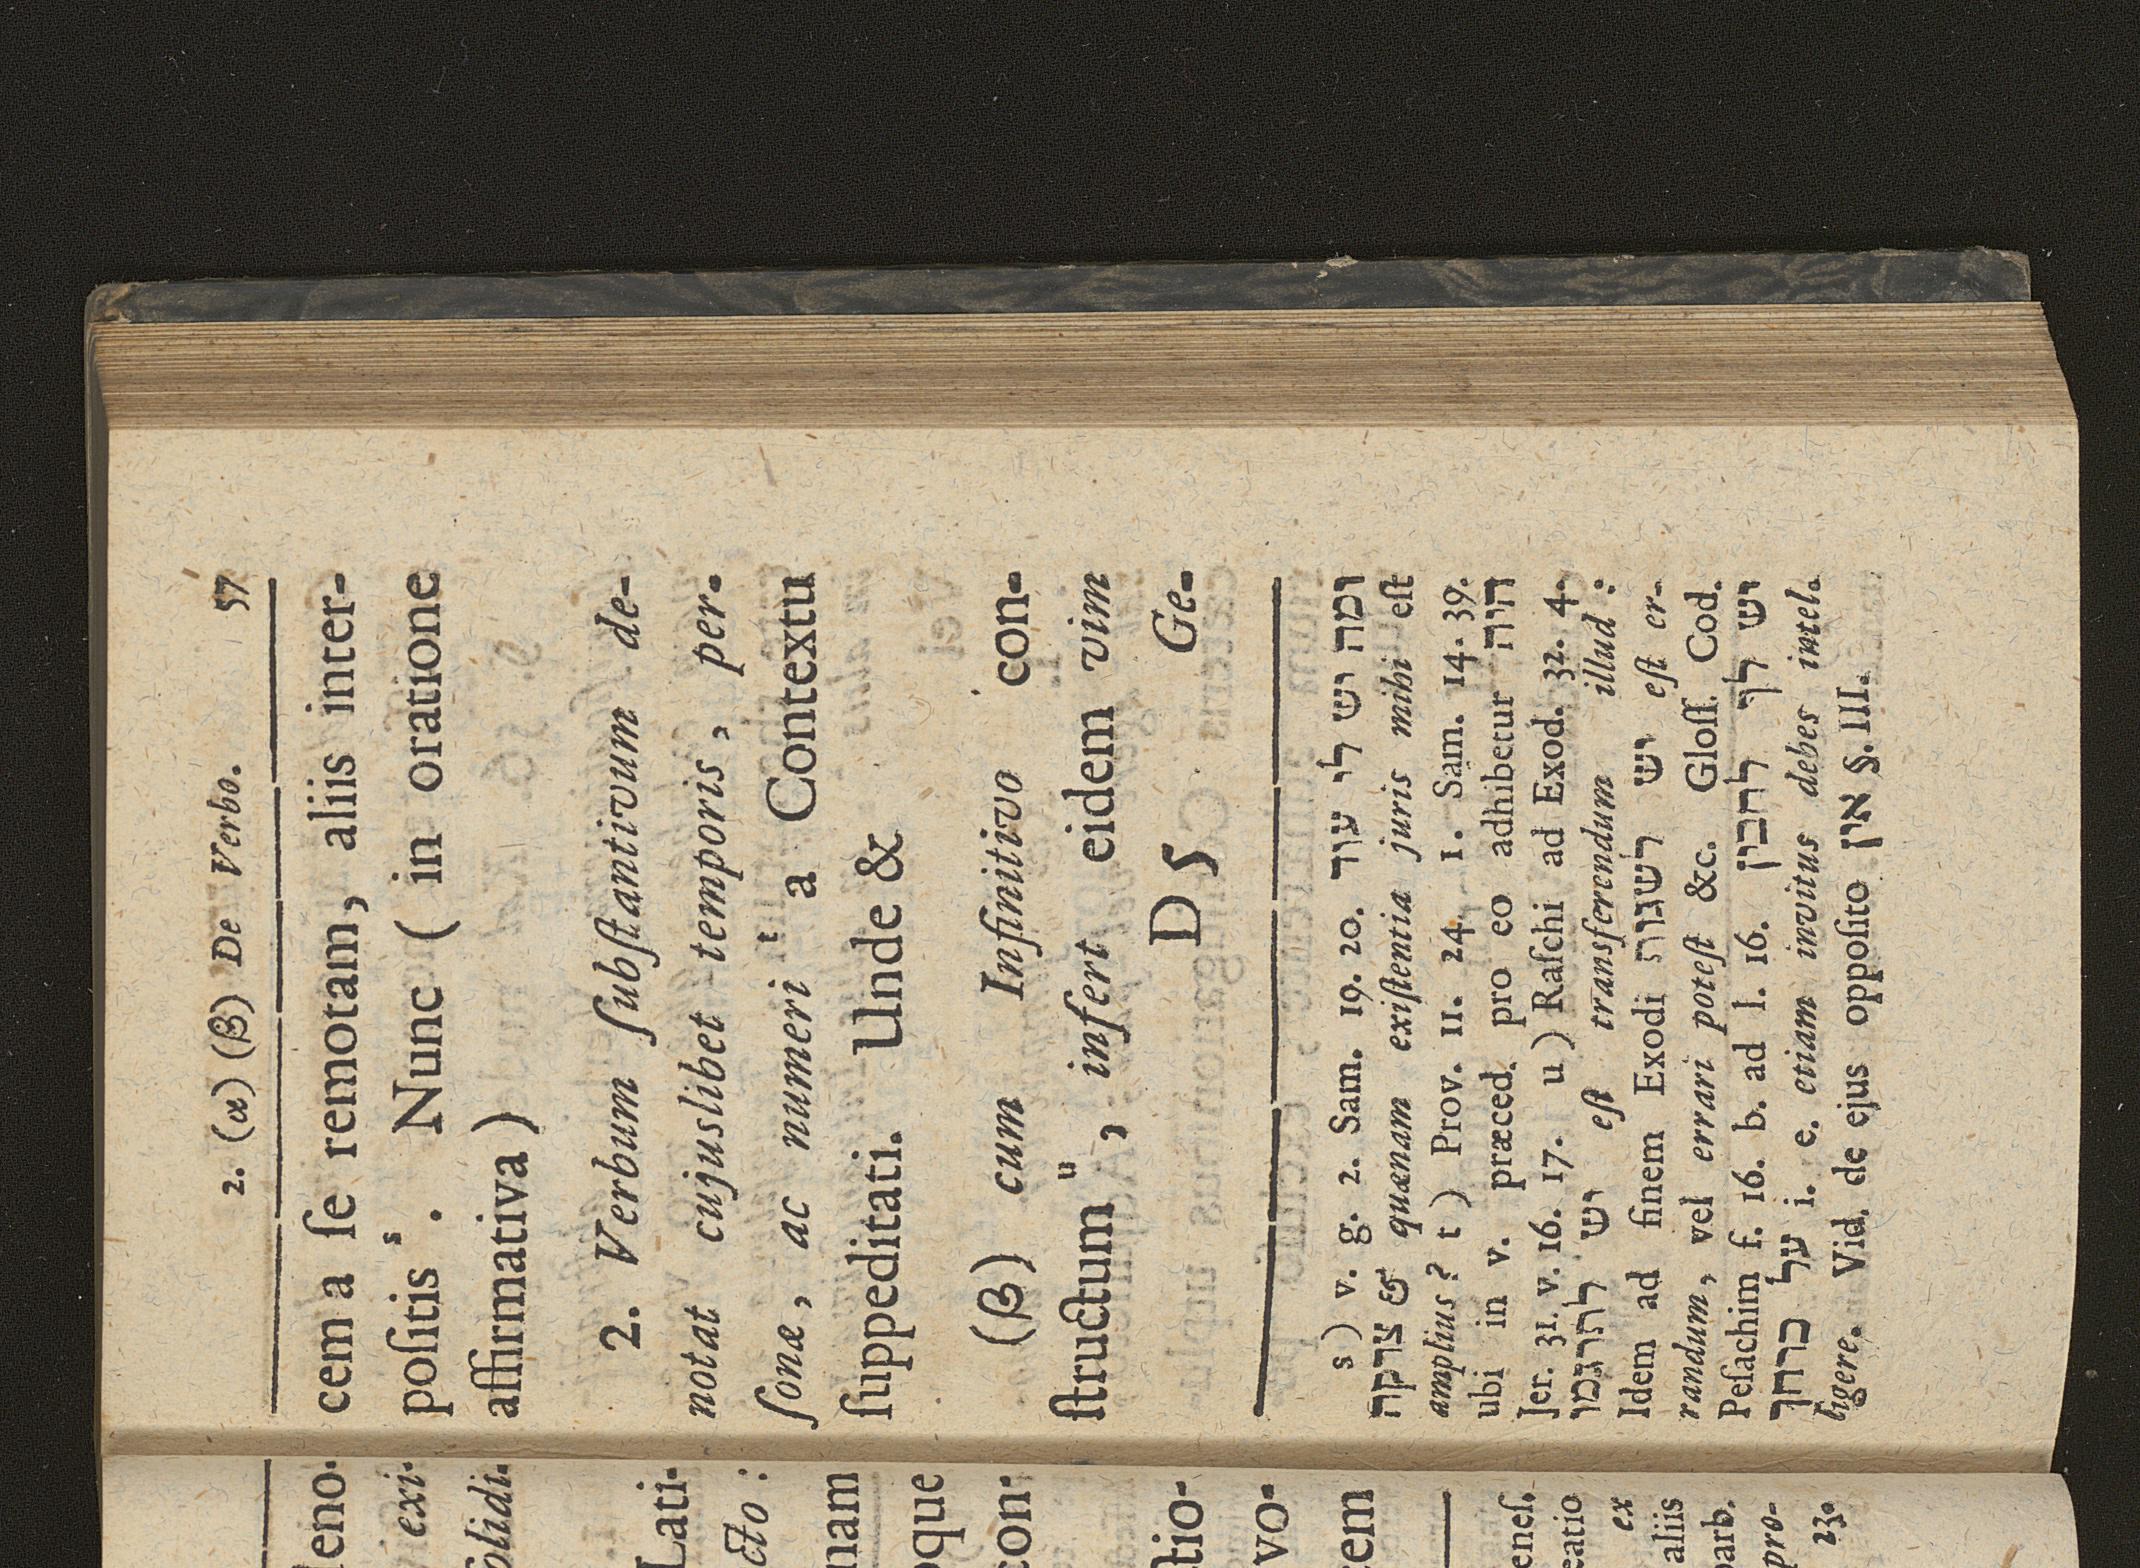 2. (α) (β) De Verbo. 57
cem a ſe remotam, aliis inter-
poſitis ˢ. Nunc ( in oratione
affirmativa )
2. Verbum ſubſtantivum de-
notat cujuslibet temporis, per-
ſonæ, ac numeri ᵗ a Contextu
ſuppeditati. Unde &
(β) cum Infinitivo con-
ſtructum ᵘ, infert eidem vim
D 5 Ge-
s ) v. g. 2. Sam. 19. 20. ומה יש לי עוד
צדקה & quænam exiſtentia juris mihi eſt
amplius? t ) Prov. 11. 24. 1. Sam. 14. 39.
ubi in v. præced. pro eo adhibetur היה
Jer. 31. v. 16. 17. u ) Raſchi ad Exod. 32. 4.
יש לתרגמו eſt transferendum illud :
Idem ad finem Exodi יש לשגות eſt er-
randum, vel errari poteſt &c. Gloſſ. Cod.
Peſachim f. 16. b. ad l. 16. יש לך להבין
על כרחך i. e. etiam invitus debes intel-
ligere. Vid. de ejus oppoſito אין §. III.
leno-
exi-
olidi-
Lati-
cto :
nam
oque
con-
tio-
vo-
rem
eneſ.
eatio
ex
aliis
parb.
pro-
23.